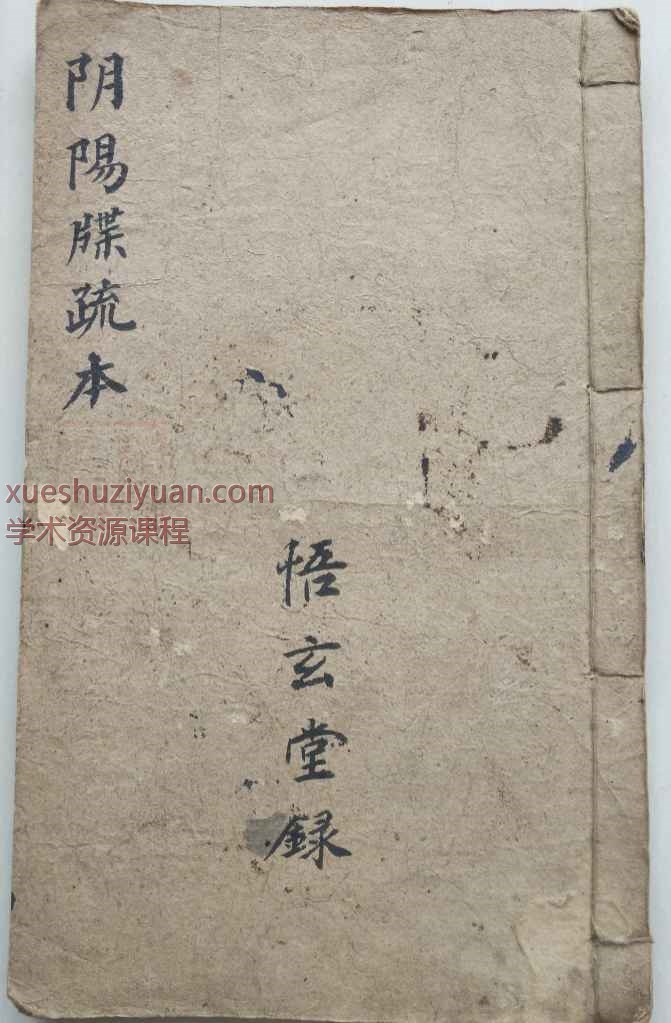 阴陽牒疏本
xueshuziyuan.com
学术资源课程
悟玄堂録